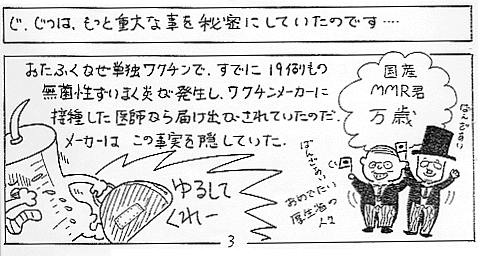 じ、じつは、もっと重大な事を秘密にしていたのです‥‥
おたふくかぜ単独ワクチンで、すでに19例もの
無菌性ずいまく炎が発生し、ワクチンメーカーに
接種した医師から届け出がされていたのだ。
メーカーは この事実を隠していた。
ゆるして
くれー
国産
MMR君
万歳
ばんざーい
ばんざーい
おめでたい
厚生省の
人々
3